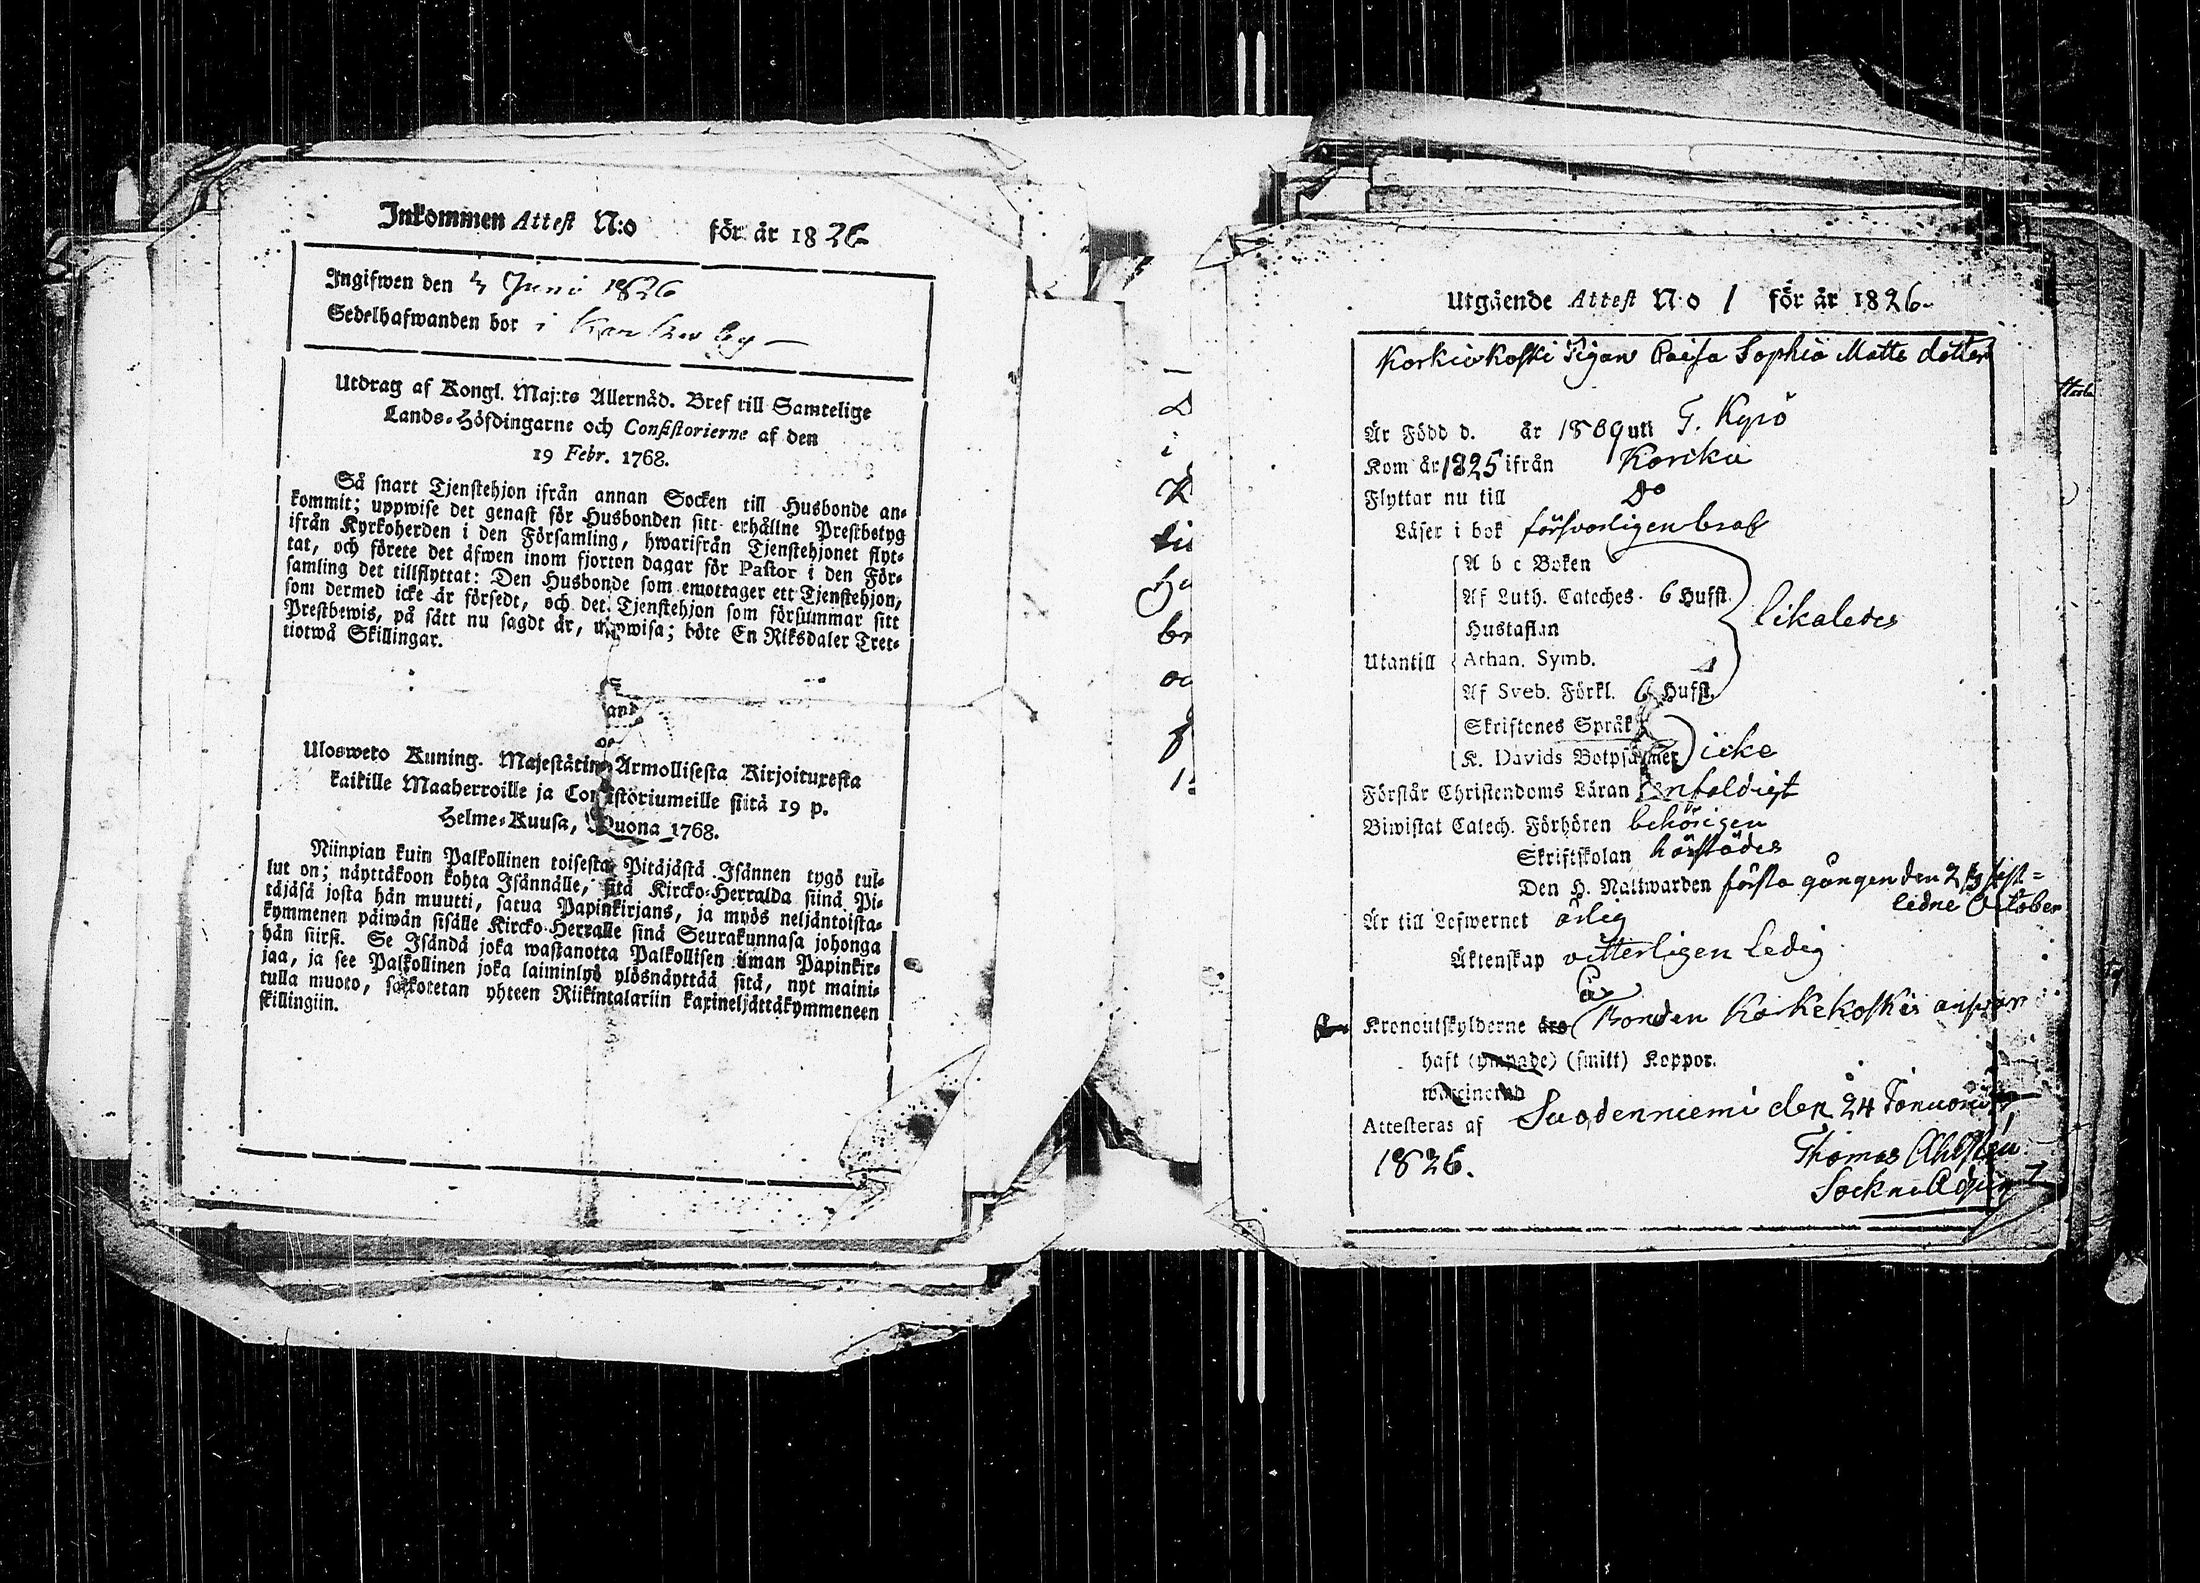 Inkommen Attest N:o för år 1826
Ingifwen den 4 Juni 1826
Sedelhafwanden bor i Karkkuby —
Utdrag af Kongl. Maj:ts Allernåd. Bref till Samtelige
Lands-Höfdingarne och Consistorierne af den
19 Febr. 1768.
Så snart Tjenstehjon ifrån annan Socken till Husbonde an-
kommit; uppwise det genast för Husbonden sitt erhållne Prestbetyg
ifrån Kyrkoherden i den Församling, hwarifrån Tjenstehjonet flyt-
tat, och förete det äfwen inom fjorton dagar för Pastor i den För-
samling det tillflyttat: Den Husbonde som emottager ett Tjenstehjon,
som dermed icke är försedt, och det Tjenstehjon som försummar sitt
Prestbewis, på sätt nu sagdt är, uppwisa; böte En Riksdaler Tret-
tiotwå Skillingar.
Ulosweto Kuning. Majestätin Armollisesta Kirjoituxesta
kaikille Maaherroille ja Consistoriumeille siitä 19 p.
Helme-Kuusa, Wuona 1768.
Niinpian kuin Palkollinen toisesta Pitäjästä Isännen tygö tul-
lut on; näyttäkoon kohta Isännälle, sitä Kircko-Herralda siinä Pi-
täjäsä josta hän muutti, satua Papinkirjans, ja myös neljäntoista-
kymmenen päiwän sisälle Kircko-Herralle sinä Seurakunnasa johonga
hän siirsi. Se Isändä joka wastanotta Palkollisen ilman Papinkir-
jaa, ja see Palkollinen joka laiminlyö ylösnäyttää sitä, nyt maini-
tulla muoto, sackotetan yhteen Riikintalariin kaxineljättäkymmeneen
skillingiin.
Utgående Attest N:o 1 för år 1826
Korkiakoski Pigan Caisa Sophia Matts dotter
Är Född d. år 1809 uti T. Kyrö
Kom år 1825 ifrån Karcku
Flyttar nu till Do
Läser i bok försvarligen braf
A b c Boken
Af Luth. Cateches. 6 Hufst.
Hustaflan
likaledes
Utantill Athan. Symb.
Af Sveb. Förkl. 6 Hufst.
Skriftenes Språk
K. Davids Botpsalmer icke
Förstår Christendoms Läran enfaldigt
Biwistat Catech. Förhören behörigen
Skriftskolan härstädes
Den H. Nattwarden första gången den 23 sist-
ledne October
Är till Lefwernet ärlig
Äktenskap vitterligen Ledig
Kronoutskylderne å Bonden Korkekoskis answar
haft (ympade) (smitt) Koppor.
waccinerad
Attesteras af Suodenniemi den 24 Januarii
1826. Thomas Ahlsten
Sockne Adjunct